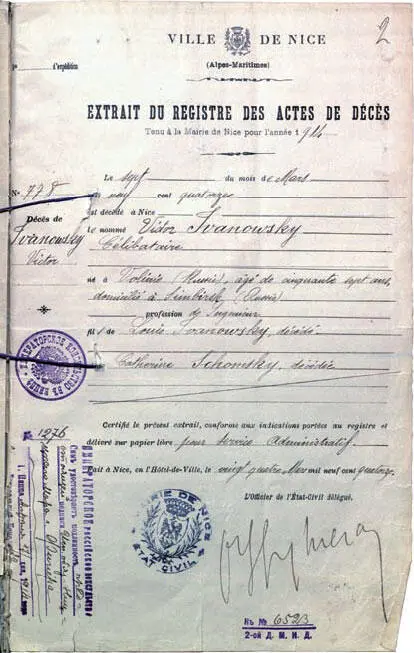 2
VILLE DE NICE
(Alpes-Maritimes)
N° d'expédition
EXTRAIT DU REGISTRE DES ACTES DE DÉCÈS
Tenu à la Mairie de Nice pour l'année 1914
Le sept du mois de Mars
N° 778
mil neuf cent quatorze
est décédé à Nice
Décès de
Ivanowsky
Victor
le nommé Victor Ivanowsky
Célibataire
né à Volinie (Russie), âgé de cinquante sept ans,
domicilié à Simbirsk (Russie)
profession d'Ingénieur
fils de Louis Ivanowsky, décédé
Catherine Schomsky, décédée
Certifié le présent extrait, conforme aux indications portées au registre et
délivré sur papier libre pour service Administratif.
Fait à Nice, en l'Hôtel-de-Ville, le vingt quatre Mars mil neuf cent quatorze
L'Officier de l'État-Civil délégué,
MAIRIE DE NICE
ÉTAT CIVIL
1276
Къ № 6523
2-ой Д. И. Д.